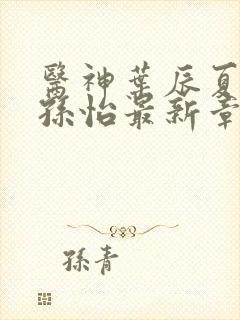 醫神葉辰夏
孫怡最新章
孫青